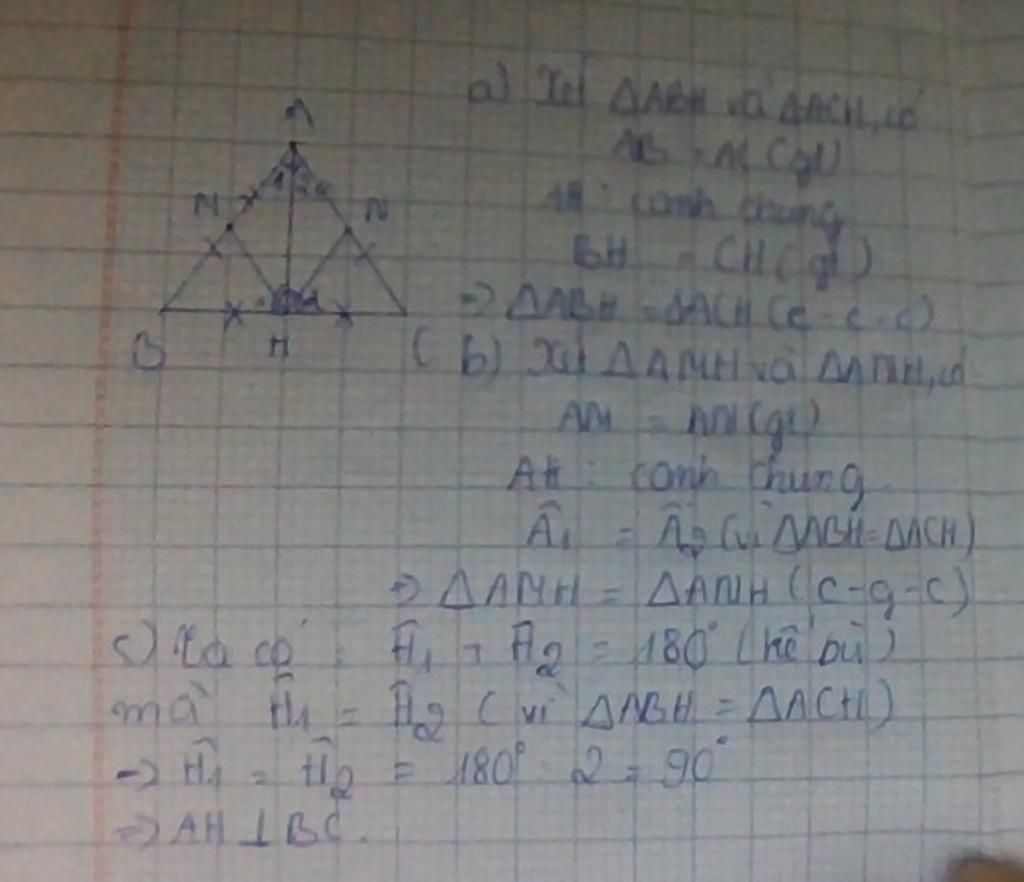 A
M N
1 2
B H C
a) Xét ΔABH và ΔACH, có
AB = AC (gt)
AH : cạnh chung
BH = CH (gt)
=> ΔABH = ΔACH (c-c-c)
b) Xét ΔAMH và ΔANH, có
AM = AN (gt)
AH : cạnh chung
Â₁ = Â₂ (vì ΔABH = ΔACH)
=> ΔAMH = ΔANH (c-g-c)
c) Ta có : Ĥ₁ + Ĥ₂ = 180° (kề bù)
mà Ĥ₁ = Ĥ₂ (vì ΔABH = ΔACH)
=> Ĥ₁ = Ĥ₂ = 180° : 2 = 90°
=> AH ⊥ BC.